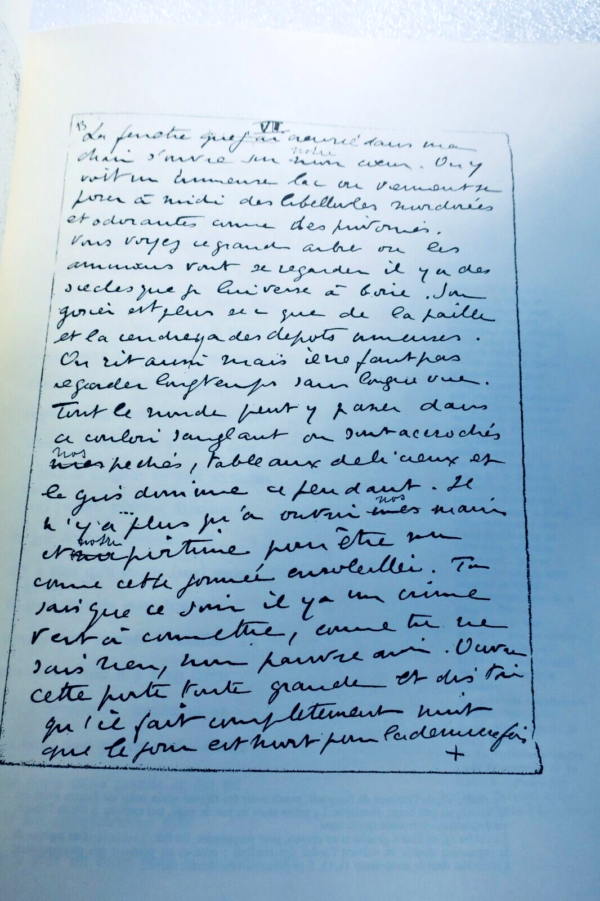 VII
13
La fenêtre que j'ai creusée dans ma
notre
chair s'ouvre sur mon cœur. On y
voit un immense lac ou viennent se
poser à midi des libellules mordorées
et odorantes comme des pivoines.
Vous voyez ce grand arbre ou les
animaux vont se regarder il y a des
siècles que je lui verse à boire. Son
gosier est plus sec que de la paille
et la cendre y a des depots immenses.
On rit aussi mais il ne faut pas
regarder longtemps sans longue vue.
Tout le monde peut y passer dans
ce couloir sanglant ou sont accrochés
nos
mes pechés, tableaux delicieux et
le gris domine cependant. Il
nos
n'y a plus qu'à ouvrir mes mains
notre
et ma poitrine pour être nu
comme cette journée ensoleillée. Tu
sais que ce soir il y a un crime
vert à commettre, comme tu ne
sais rien, mon pauvre ami. Ouvre
cette porte toute grande et dis toi
qu'il fait completement nuit
que le jour est mort pour la derniere fois
+